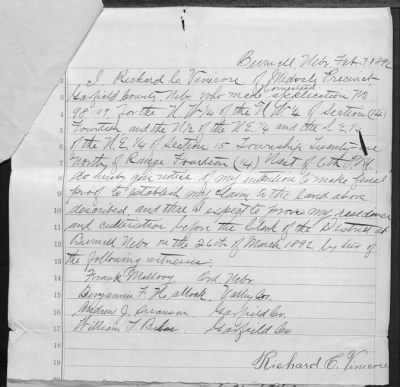 Burwell, Nebr Feb 3 1892
I Richard C. Vinecore of Midvale Precinct
Garfield County Neb who made application No
commuted
9809 for the N W ¼ of the N W ¼ of Section (14)
Fourteen and the N ½ of the N.E. ¼ and the S.E. ¼
of the N.E. ¼ of Section 15 Township Twenty one
North of Range Fourteen (14) West of 6th P.M.
do hereby give notice of my intention to make final
proof to establish my claim to the land above
described, and that I expect to prove my residence
and cultivation before the Clerk of the District at
Burwell Nebr on the 26th of March 1892 by two of
the following witnesses:
Frank Mallory Ord Nebr
Benjamin F. Hallock. Valley Co.
Andrew J. Swanson Garfield Co.
William T Garfield Co
Richard C. Vinecore
1
2
3
4
5
6
7
8
9
10
11
12
13
14
15
16
17
18
19